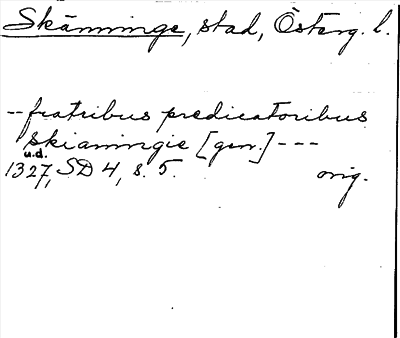 Skänninge, stad, Österg. l.
-- fratribus predicatoribus
Skianingie [gen.] ---
u.d.
1327, SD 4, s. 5. orig.